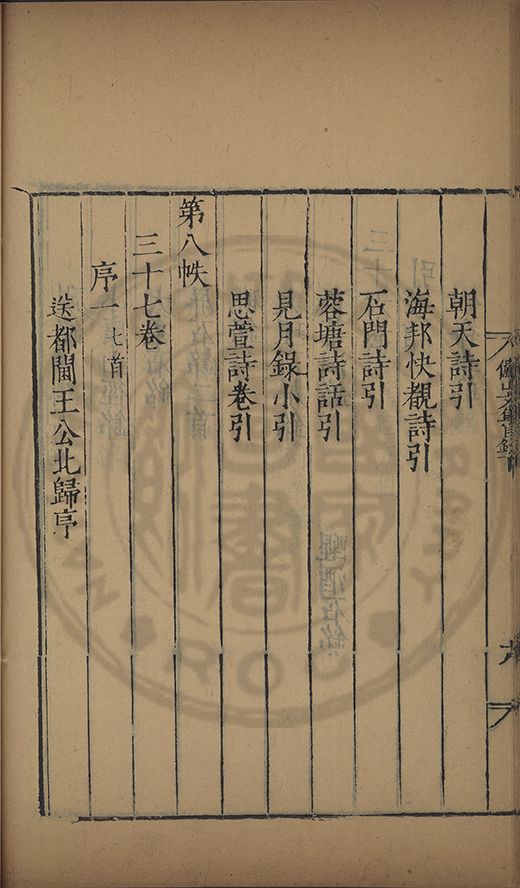 朝天詩引
海邦快覩詩引
石門詩引
蓉塘詩話引
見月錄小引
思萱詩卷引
第八帙
三十七卷
序一 七首
送都閫王公北歸序